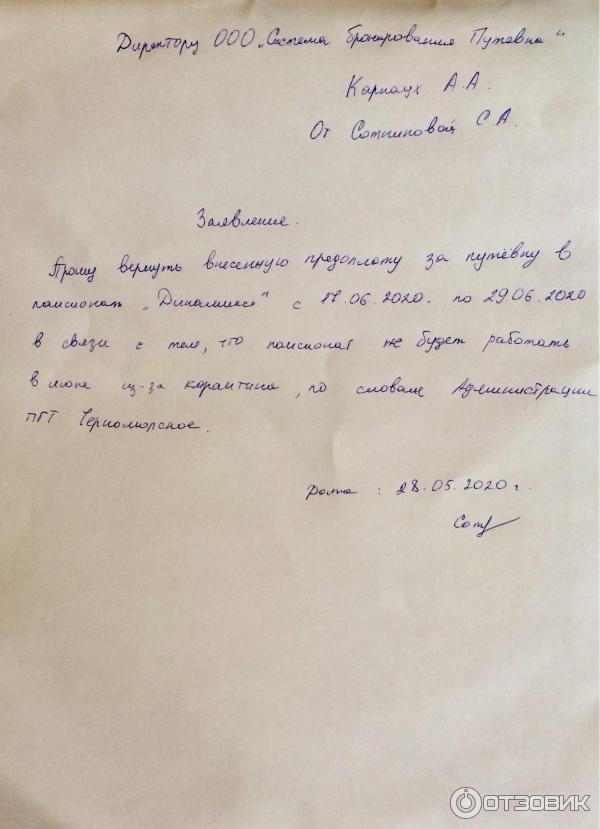 Директору ООО „Система бронирования Путёвка"
Карнаух А.А.
От Сотниковой С.А.
Заявление.
Прошу вернуть внесенную предоплату за путёвку в
пансионат „Динамика" с 17.06.2020. по 29.06.2020
в связи с тем, что пансионат не будет работать
в июне из-за карантина, по словам Администрации
ПГТ Черноморское.
Дата: 28.05.2020 г.
Сот
ОТЗОВИК